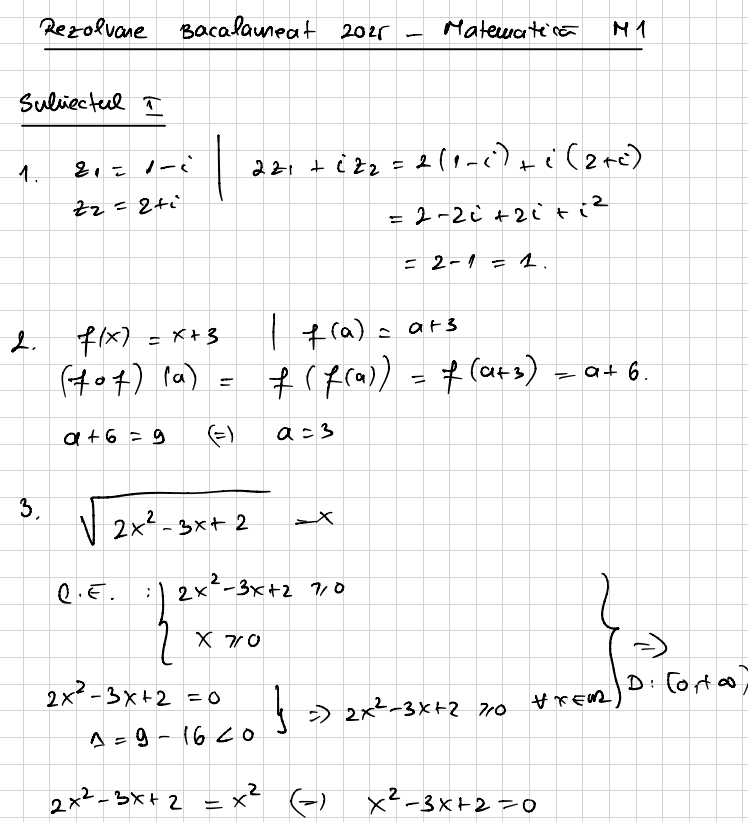 Rezolvare Bacalaureat 2025 – Matematică M1
Subiectul I
1. z₁ = 1-i | 2z₁ + iz₂ = 2(1-i) + i(2+i)
z₂ = 2+i
= 2-2i+2i+i²
= 2-1 = 1.
2. f(x) = x+3 | f(a) = a+3
(f∘f)(a) = f(f(a)) = f(a+3) = a+6.
a+6 = 9 (=) a = 3
3. √(2x²-3x+2) = x
C.E. : { 2x²-3x+2 ≥ 0
x ≥ 0
} => D: [0,+∞)
2x²-3x+2 = 0
Δ = 9-16 < 0 } => 2x²-3x+2 ≥ 0 ∀x∈ℝ
2x²-3x+2 = x² (=) x²-3x+2 = 0